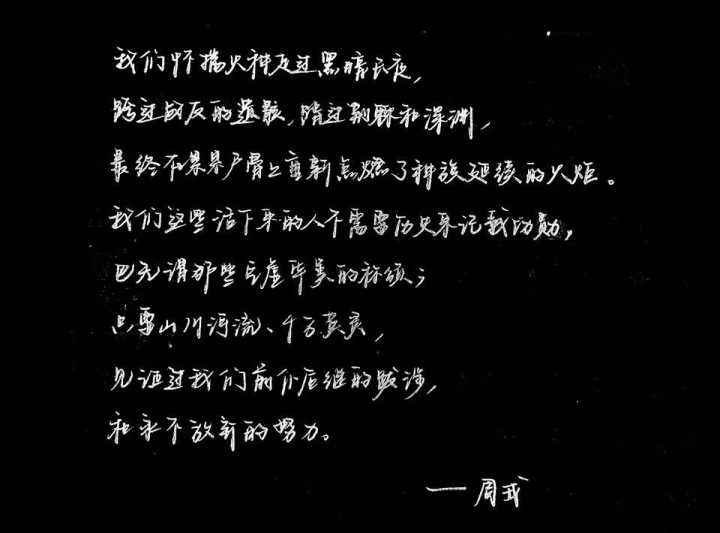 我们怀揣火种反过黑暗长夜，
跨过战友的遗骸，踏过荆棘和深渊，
最终在累累尸骨上重新点燃了种族延续的火炬。
我们这些活下来的人不需要历史来记载功勋，
也无谓那些 华美的称颂；
只要山川河流、千万英灵，
见证过我们前仆后继的跋涉，
和永不放弃的努力。
——周戎